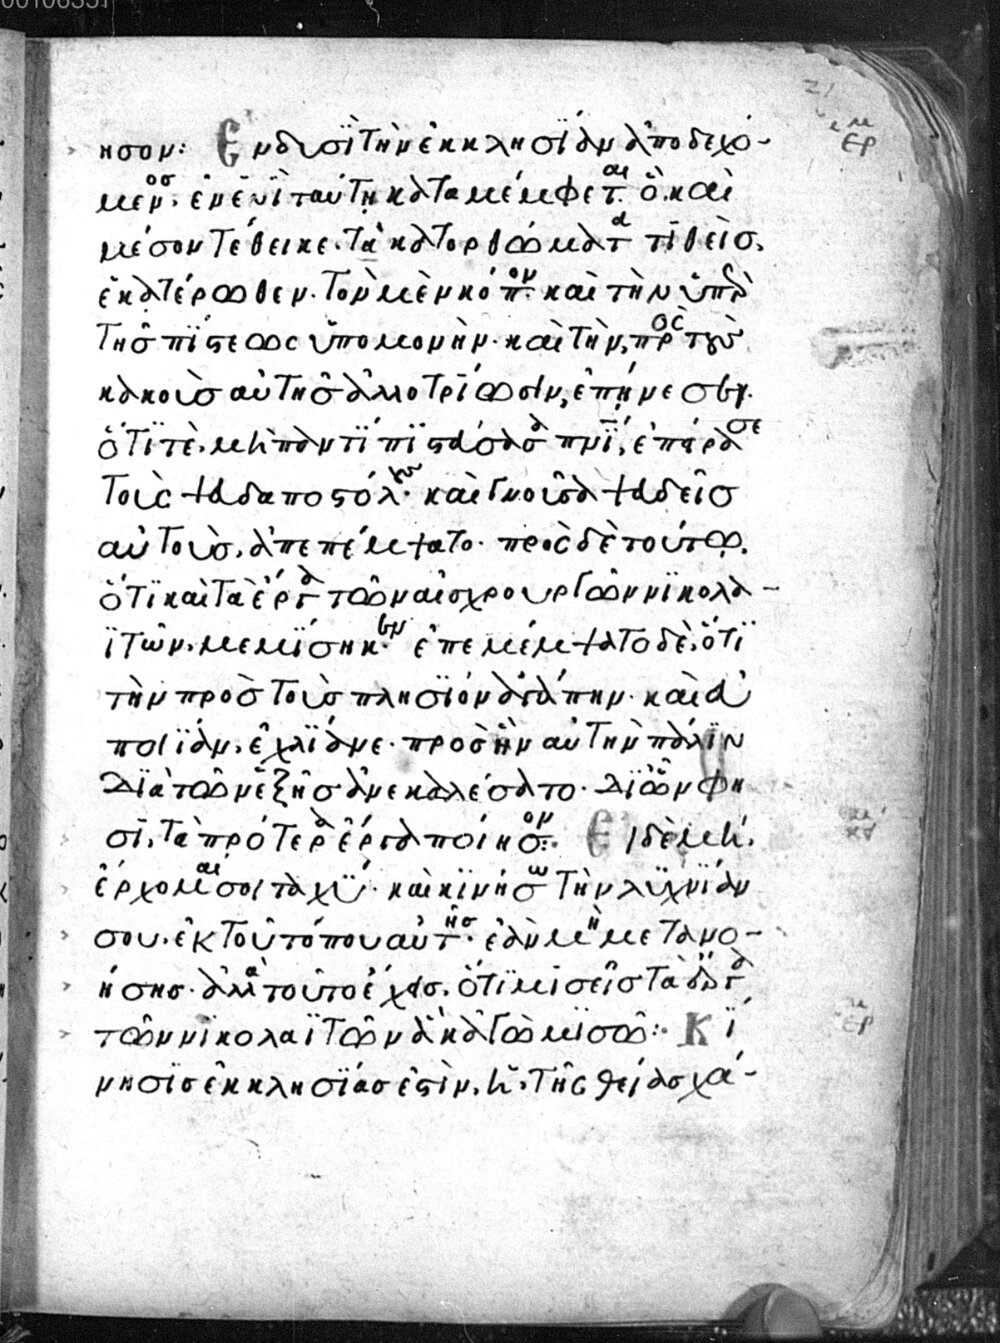 ησον: Ἐν δυσὶ τὴν ἐκκλησίαν ἀποδεχό-
μενος. ἐν ἑνὶ ταύτην καταμέμφεται. ὃ καὶ
μέσον τέθεικε. τὰ κατορθώματα τιθεὶς.
ἑκατέρωθεν. τὸν μὲν κόπον. καὶ τὴν ὑπὲρ
τῆς πίστεως ὑπομονὴν. καὶ τὴν πρὸς τοὺς
κακοὺς αὐτῆς ἀλλοτρίωσιν, ἐπήνεσεν.
ὅτι τὲ μὴ παντὶ πνι, ἐπείρασε
τοὺς ψαδαποστόλους. καὶ γνοῦσα ψαδεῖς
αὐτοὺς, ἀπεπέμψατο. πρὸς δὲ τούτω.
ὅτι καὶ τὰ ἔργα τῶν αἰσχρουργῶν νικολα-
ϊτῶν. μεμίσηκεν. ἐπεμέμψατο δὲ, ὅτι
τὴν πρὸς τοὺς πλησίον ἀγάπην. καὶ εὐ
ποιΐαν, ἐχλίανε. πρὸς ἣν αὐτὴν πάλιν
διὰ τῶν ἑξῆς ἀνεκαλέσατο. δι ὧν φη
σὶ, τὰ πρότερα ἔργα ποίησον: Εἰ δὲ μὴ.
ἔρχομαι σοι ταχὺ. καὶ κινήσω τὴν λυχνίαν
σου. ἐκ τοῦ τόπου αὐτῆς. ἐὰν μὴ μετανο-
ήσης. ἀλλὰ τοῦτο ἔχεις. ὅτι μισεῖς τὰ ἔργα
τῶν νικολαϊτῶν ἃ κἀγὼ μισῶ: Κί
νησις ἐκκλησίας ἐστὶν, ἢ τῆς θείας χά-
21
κμ
ερ
κμ
ερ